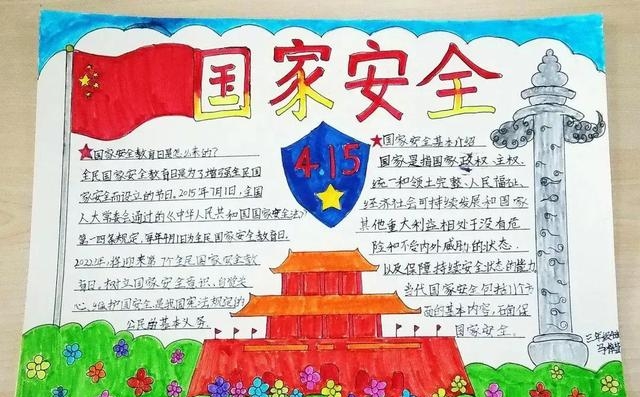 国家安全
4.15
★国家安全教育日是怎么来的?
全民国家安全教育日是为了增强全民国
家安全而设立的节日。2015年7月1日,全国
人大常委会通过的《中华人民共和国国家安全法》
第一四条规定,每年4月1日为全民国家安全教育日.
2022年,将迎来第7个全民国家安全教
育日,树立国家安全意识,自觉关
心、维护国安全是我国宪法规定的
公民的基本义务。
★国家安全基本介绍
国家是指国家政权、主权、
统一和领土完整、人民福祉、
经济社会可持续发展和国家
其他重大利益相对处于没有危
险和不受内外威胁的状态,
以及保障持续安全状态的能力
当代国家安全包括11个方
面的基本内容,确保
国家安全。
三年级